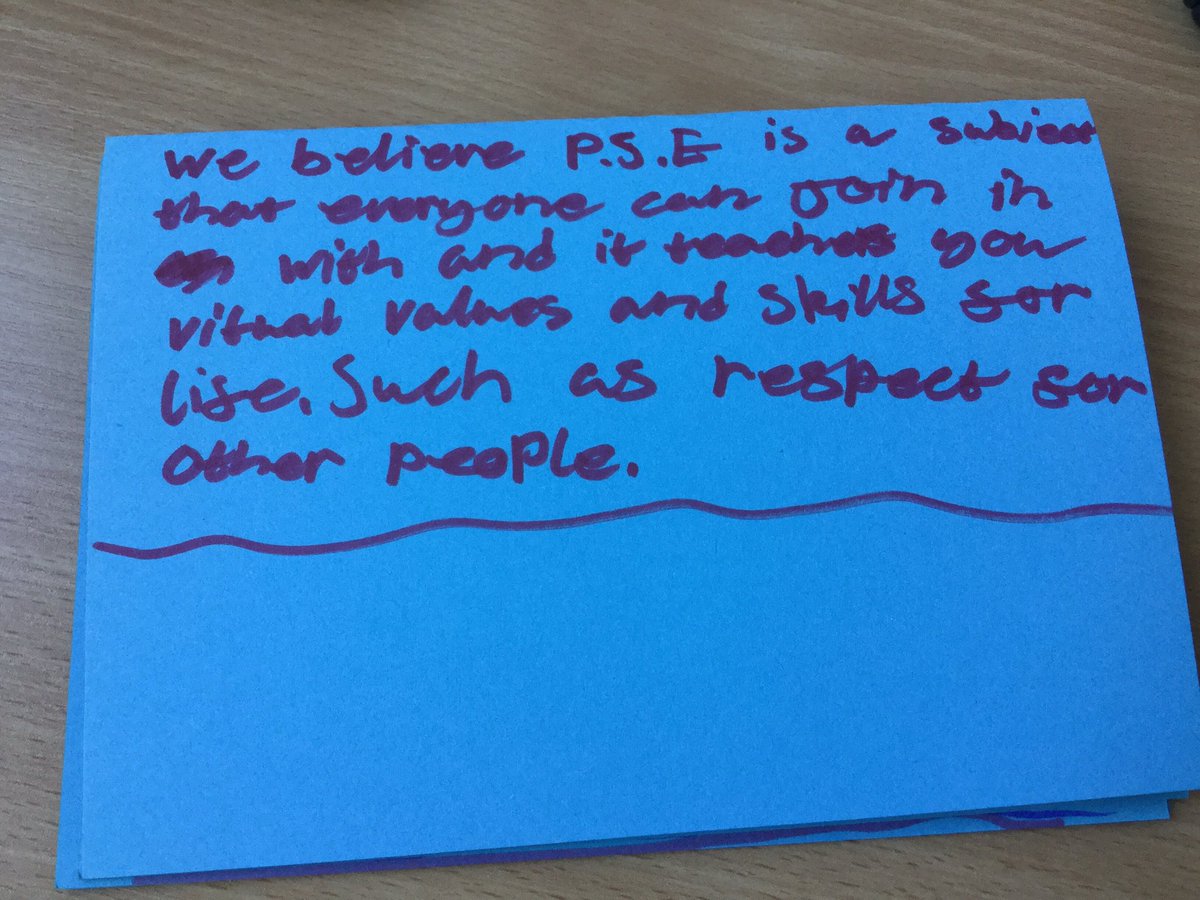 We believe P.S.E is a subject
that everyone can join in
with and it teaches you
vitual values and skills for
life. Such as respect for
other people.